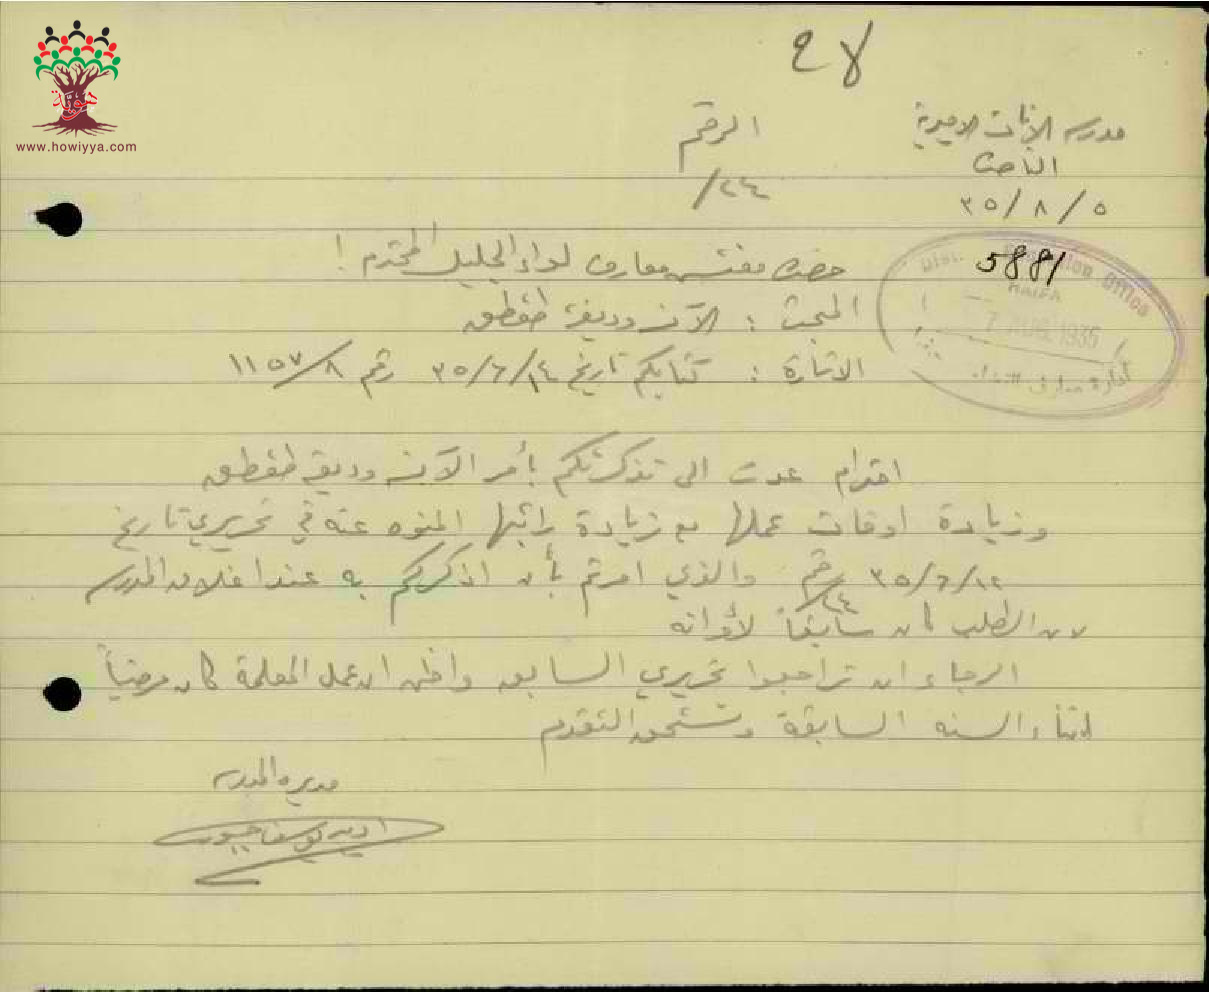 هوية
www.howiyya.com
٤٨
مدرسة الاناث الاميرية
الرقم
٢٤/
٣٥/٨/٥
5881
Dist. Education Office
HAIFA
7 AUG 1935
ادارة معارف
حضرة مفتش معارف لواء الجليل المحترم !
المبحث : الآنسة وديعة قطقط
الاشارة : كتابكم تاريخ ٣٥/٦/١٤ رقم ١١٥٧/٨
احترام عدت الى تذكرتكم بأمر الآنسة وديعة قطقط
وزيادة اوقات عملها مع زيادة راتبها المنوه عنه في تحريري تاريخ
٣٥/٦/١٢ رقم ٢٤/ والذي امرتم بأن اذكركم به عند اغلاق المدرسة
لان الطلب كان سابقاً لأوانه
الرجاء ان تراجعوا تحريري السابق واظن ان عمل المعلمة كان مرضياً
اثناء السنه السابقة وتستحق التقدم
مديرة المدرسة